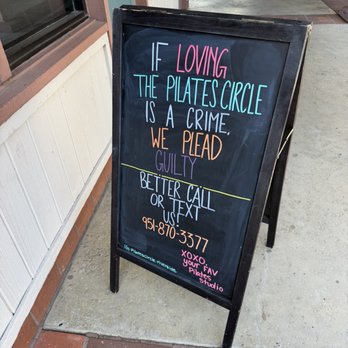 IF LOVING
THE PILATES CIRCLE
IS A CRIME,
WE PLEAD
GUILTY
BETTER CALL
OR TEXT
US!
951-870-3377
XOXO,
your FAV
Pilates
studio